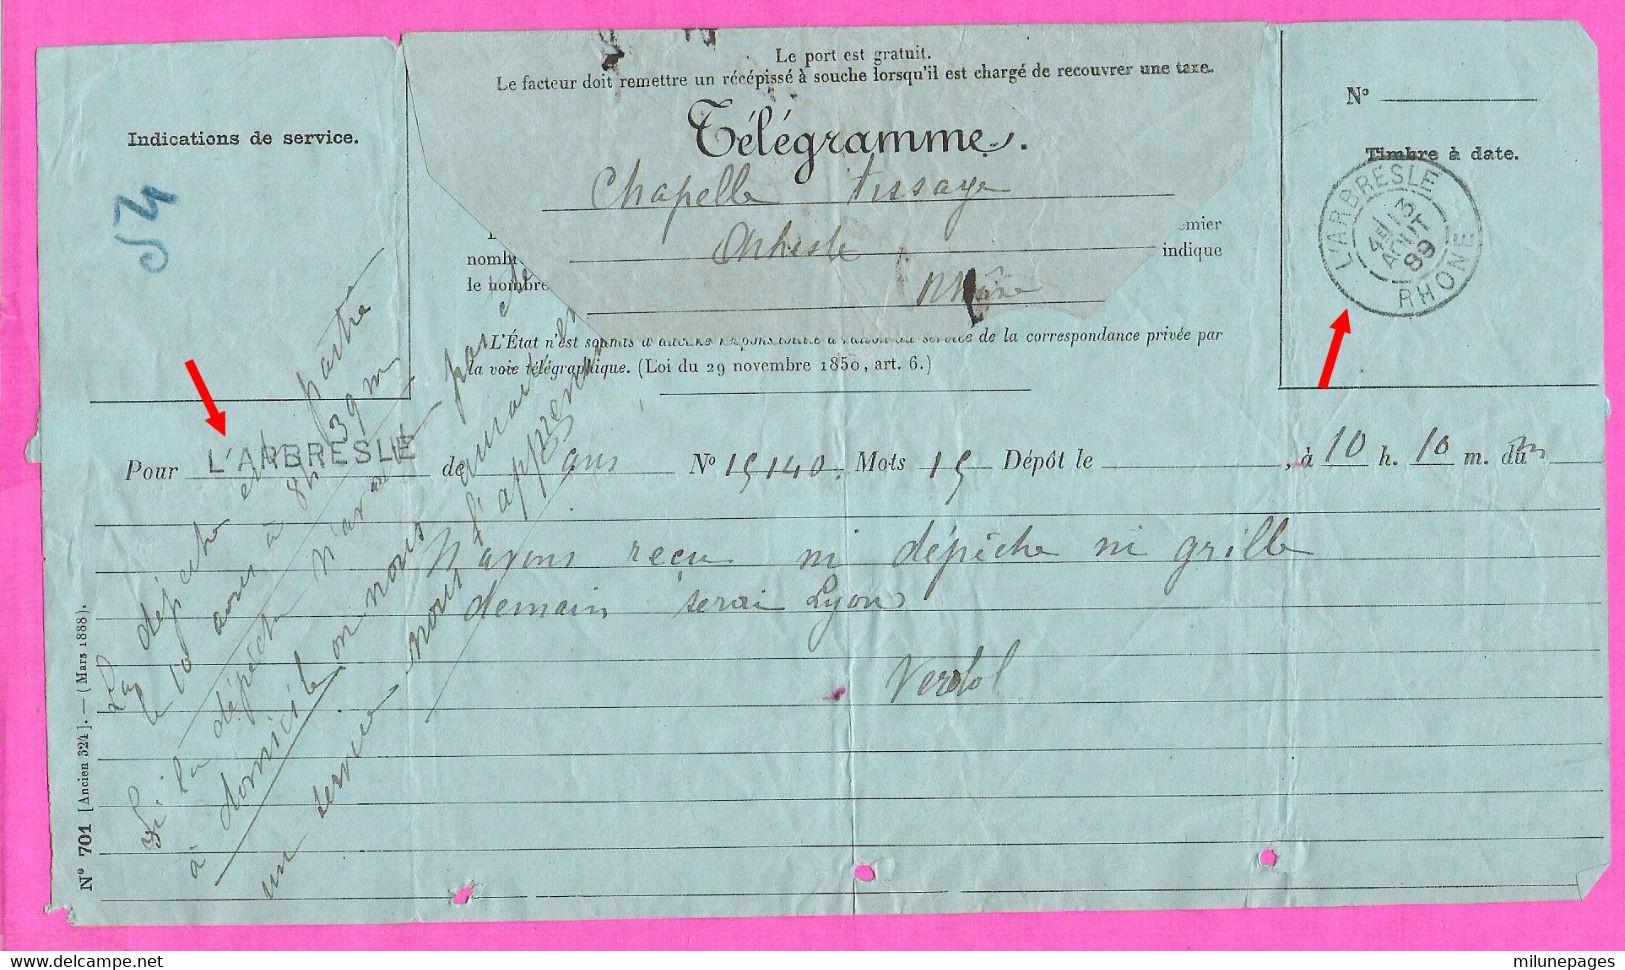 Le port est gratuit.
Le facteur doit remettre un récépissé à souche lorsqu'il est chargé de recouvrer une taxe.
Indications de service.
Télégramme.
N°
Timbre à date.
L'ARBRESLE
4E/13
AOUT
89
RHONE
Chapelle tissage
Rhône
nomb
le nombre
emier
indique
L'État n'est soumis à
de la correspondance privée par
la voie télégraphique. (Loi du 29 novembre 1850, art. 6.)
Pour L'ARBRESLE de N° 15140. Mots 15 Dépôt le , à 10 h. 10 m. du m
N'avons reçu ni dépêche ni grille
demain serai Lyon
Verdol
La dépêche est partie
le 10 à 8h 39m
Si la dépêche n'arrive pas
à domicile on nous
un service nous l'apprendra
N° 701 [Ancien 324]. — (Mars 1888).
delcampe.net
milunepages